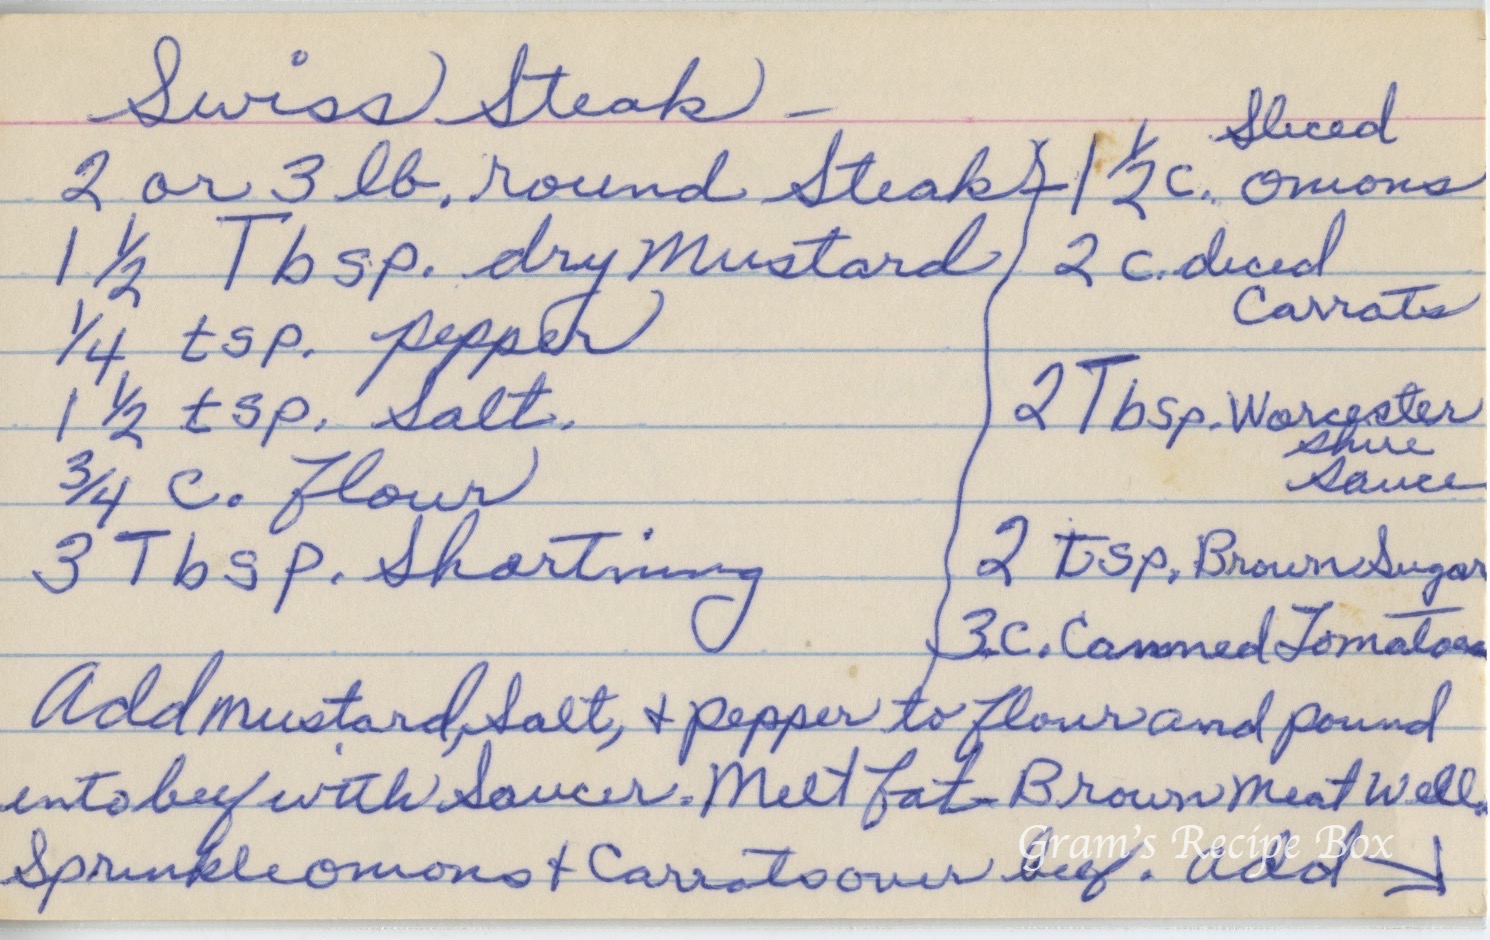 Swiss Steak -
2 or 3 lb. round Steak
1 1/2 Tbsp. dry Mustard
1/4 tsp. pepper
1 1/2 tsp. Salt.
3/4 c. flour
3 Tbsp. Shortining
1 1/2 c. Sliced onions
2 c. diced
Carrots
2 Tbsp. Worcester
shire
Sauce
2 tsp. Brown Sugar
3 c. Canned Tomatoes
Add mustard, Salt, + pepper to flour and pound
into beef with Saucer. Melt fat - Brown meat well.
Sprinkle onions + Carrots over beef. add →
Gram's Recipe Box